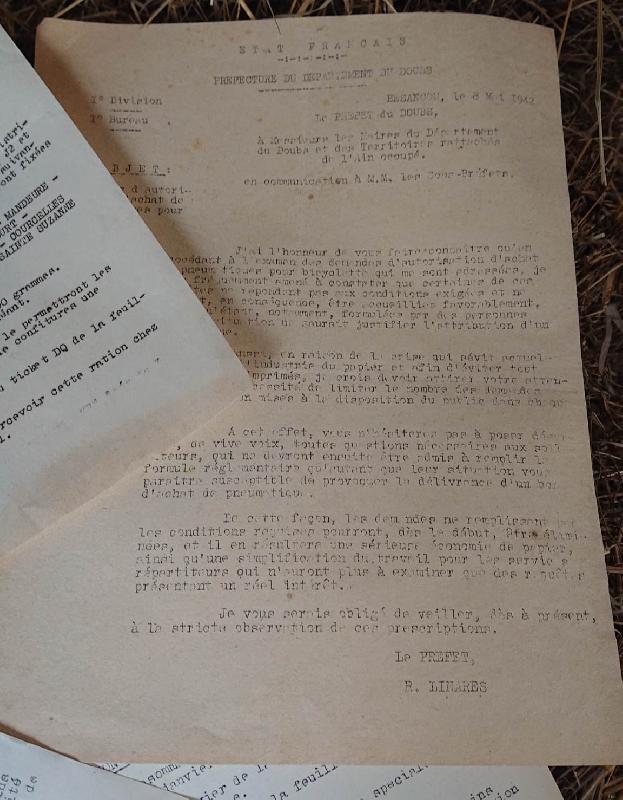 ETAT FRANCAIS
-:-:-:-:-
PREFECTURE DU DEPARTEMENT DU DOUBS
1° Division
1° Bureau
BESANCON, le 8 Mai 1942
Le PREFET du DOUBS,
à Messieurs les Maires du Département
du Doubs et des Territoires rattachés
de l'Ain occupé.
en communication à M.M. les Sous-Préfets.
BJET :
d'autori-
achat de
es pour
J'ai l'honneur de vous faire connaître qu'en
océdant à l'examen des demandes d'autorisation d'achat
pneumatiques pour bicyclette qui me sont adressées, je
fréquemment amené à constater que certaines de ces
ne répondent pas aux conditions exigées et ne
t, en conséquence, être accueillies favorablement,
étant, notamment, formulées par des personnes
ituation ne saurait justifier l'attribution d'un
e.
en raison de la crise qui sévit actuel-
l'industrie du papier et afin d'éviter tout
mprimés, je crois devoir attirer votre atten-
cessité de limiter le nombre des demandes
mises à la disposition du public dans chaque
A cet effet, vous n'hésiterez pas à poser
de vive voix, toutes questions nécessaires aux
iteurs, qui ne devront ensuite être admis à remplir la
formule réglementaire qu'autant que leur situation vous
paraîtra susceptible de provoquer la délivrance d'un bon
d'achat de pneumatique.
De cette façon, les demandes ne remplissant pas
les conditions requises pourront, dès le début, être élimi-
nées, et il en résultera une sérieuse économie de papier,
ainsi qu'une simplification du travail pour les services
répartiteurs qui n'auront plus à examiner que des requêtes
présentant un réel intérêt.
Je vous serais obligé de veiller, dès à présent,
à la stricte observation de ces prescriptions.
Le PREFET,
R. LINARES
istri-
J2 et
suivan-
ont fixées
MANDEURE -
COURCELLES
SAINTE SUZANNE
0 grammes.
dant.
le permettront les
e confitures une
ticket DQ de la feuil-
ercevoir cette ration chez
janvier
la feuill
special